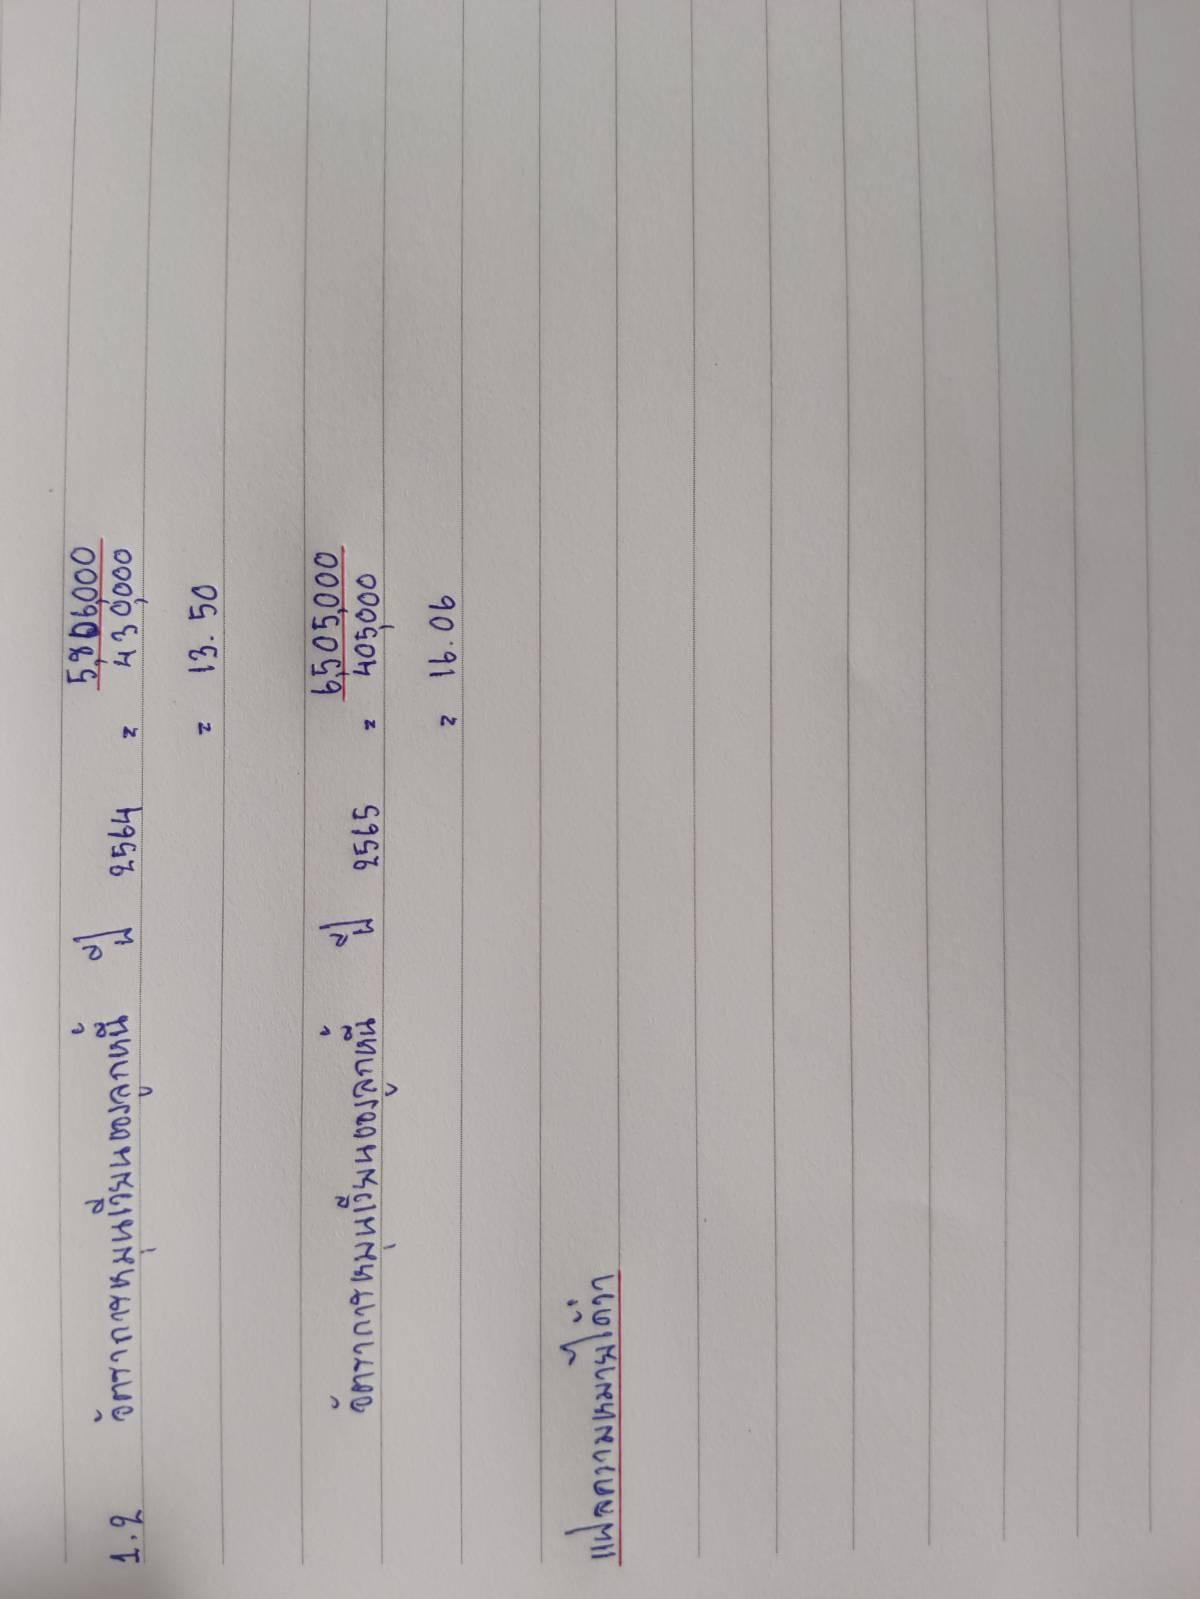 1.2 อัตราการหมุนเวียนของลูกหนี้ ปี 2564 = 5,806,000
430,000
= 13.50
อัตราการหมุนเวียนของลูกหนี้ ปี 2565 = 6,505,000
405,000
= 16.06
แปลความหมายได้ว่า